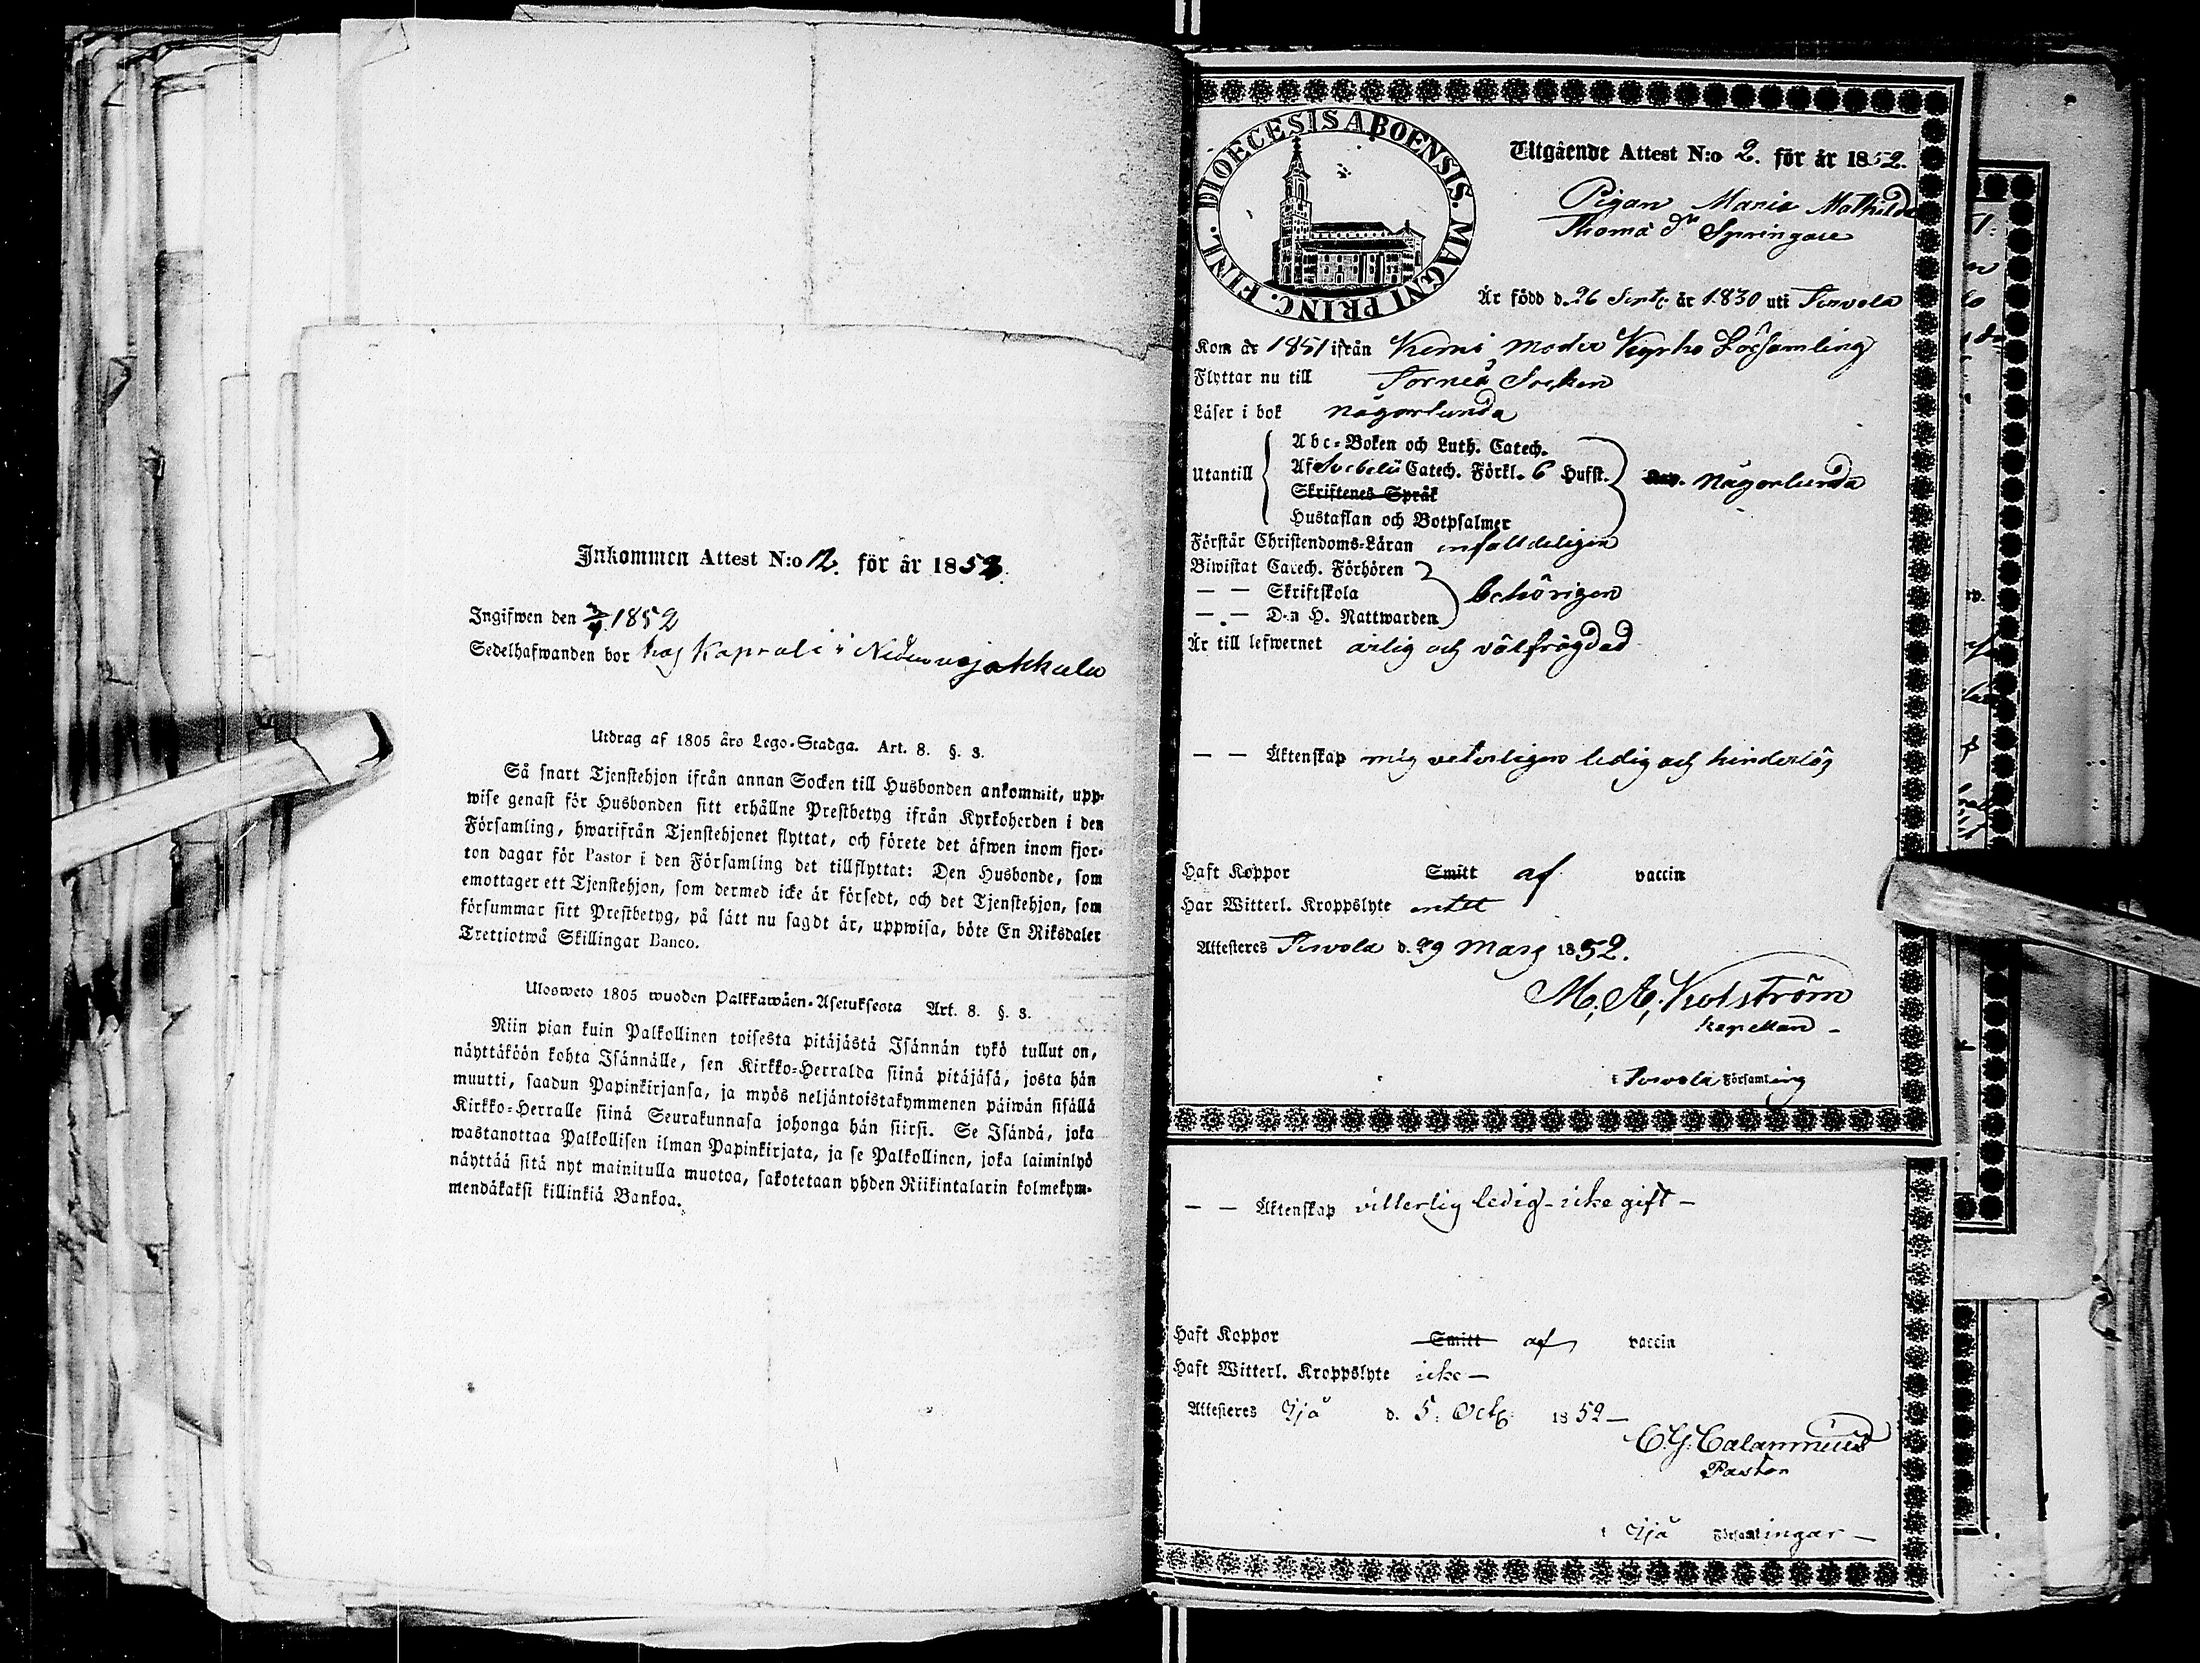 Inkommen Attest N:o 12. för år 1852.
Ingifwen den 3/4 1852
Sedelhafwanden bor hos Kaprali i Nedervojakkala
Utdrag af 1805 års Lego-Stadga. Art. 8. §. 3.
Så snart Tjenstehjon ifrån annan Socken till Husbonden ankommit, upp-
wise genast för Husbonden sitt erhållne Prestbetyg ifrån Kyrkoherden i den
Församling, hwarifrån Tjenstehjonet flyttat, och förete det äfwen inom fjor-
ton dagar för Pastor i den Församling det tillflyttat: Den Husbonde, som
emottager ett Tjenstehjon, som dermed icke är försedt, och det Tjenstehjon, som
försummar sitt Prestbetyg, på sätt nu sagdt är, uppwisa, böte En Riksdaler
Trettiotwå Skillingar Banco.
Ulosweto 1805 wuoden Palkkawäen-Asetuksesta Art. 8. §. 3.
Niin pian kuin Palkollinen toisesta pitäjästä Isännän tykö tullut on,
näyttäköön kohta Isännälle, sen Kirkko-Herralda siinä pitäjäsä, josta hän
muutti, saadun Papinkirjansa, ja myös neljäntoistakymmenen päiwän sisällä
Kirkko-Herralle siinä Seurakunnasa johonga hän siirsi. Se Isändä, joka
wastanottaa Palkollisen ilman Papinkirjata, ja se Palkollinen, joka laiminlyö
näyttää sitä nyt mainitulla muotoa, sakotetaan yhden Riikintalarin kolmekym-
mendäkaksi killinkiä Bankoa.
DIOECESIS ABOENSIS. MAGNI PRINC. FINL.
Utgående Attest N:o 2. för år 1852.
Pigan Maria Mathilda
Thomä dr Springare
Är född d. 26 Sept. år 1830 uti Tervola
Kom år 1851 ifrån Kemi Moder Kyrko Församling
Flyttar nu till Torneå Socken
Läser i bok någorlunda
Utantill
Abc-Boken och Luth. Catech.
Af Svebelii Catech. Förkl. 6 Hufst.
Skriftenes Språk
Hustaflan och Botpsalmer
någorlunda
Förstår Christendoms-Läran enfalldeligen
Biwistat Catech. Förhören
— — Skriftskola
— — D-n H. Nattwarden
behörigen
Är till lefwernet ärlig och välfrägdad
— — Äktenskap mig veterligen ledig och hinderlös
Haft Koppor Smitt af vaccin
Har Witterl. Kroppslyte intet
Attesteres Tervola d. 29 Mars 1852.
M. A. Kolström
Kapellan -
i Tervola Församling
— — Äktenskap vitterlig ledig - icke gift -
Haft Koppor Smitt af vaccin
Haft Witterl. Kroppslyte icke —
Attesteres Ijå d. 5. Octb. 1852 —
C. G. Calamnius
Pastor
i Ijå Församlingar —